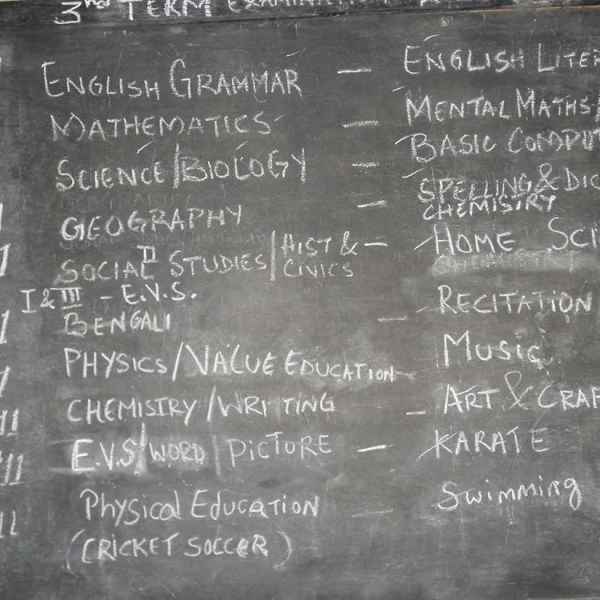 3rd TERM EXAMINATION
ENGLISH GRAMMAR — ENGLISH LITER
MATHEMATICS — MENTAL MATHS/
SCIENCE/BIOLOGY — BASIC COMPUT
GEOGRAPHY — SPELLING & DIC
CHEMISTRY
SOCIAL STUDIES/HIST & CIVICS — HOME SCI
II
I & III - E.V.S.
BENGALI — RECITATION
PHYSICS/VALUE EDUCATION — MUSIC
CHEMISTRY/WRITING — ART & CRAF
E.V.S/WORD/PICTURE — KARATE
Physical Education — Swimming
(CRICKET SOCCER)